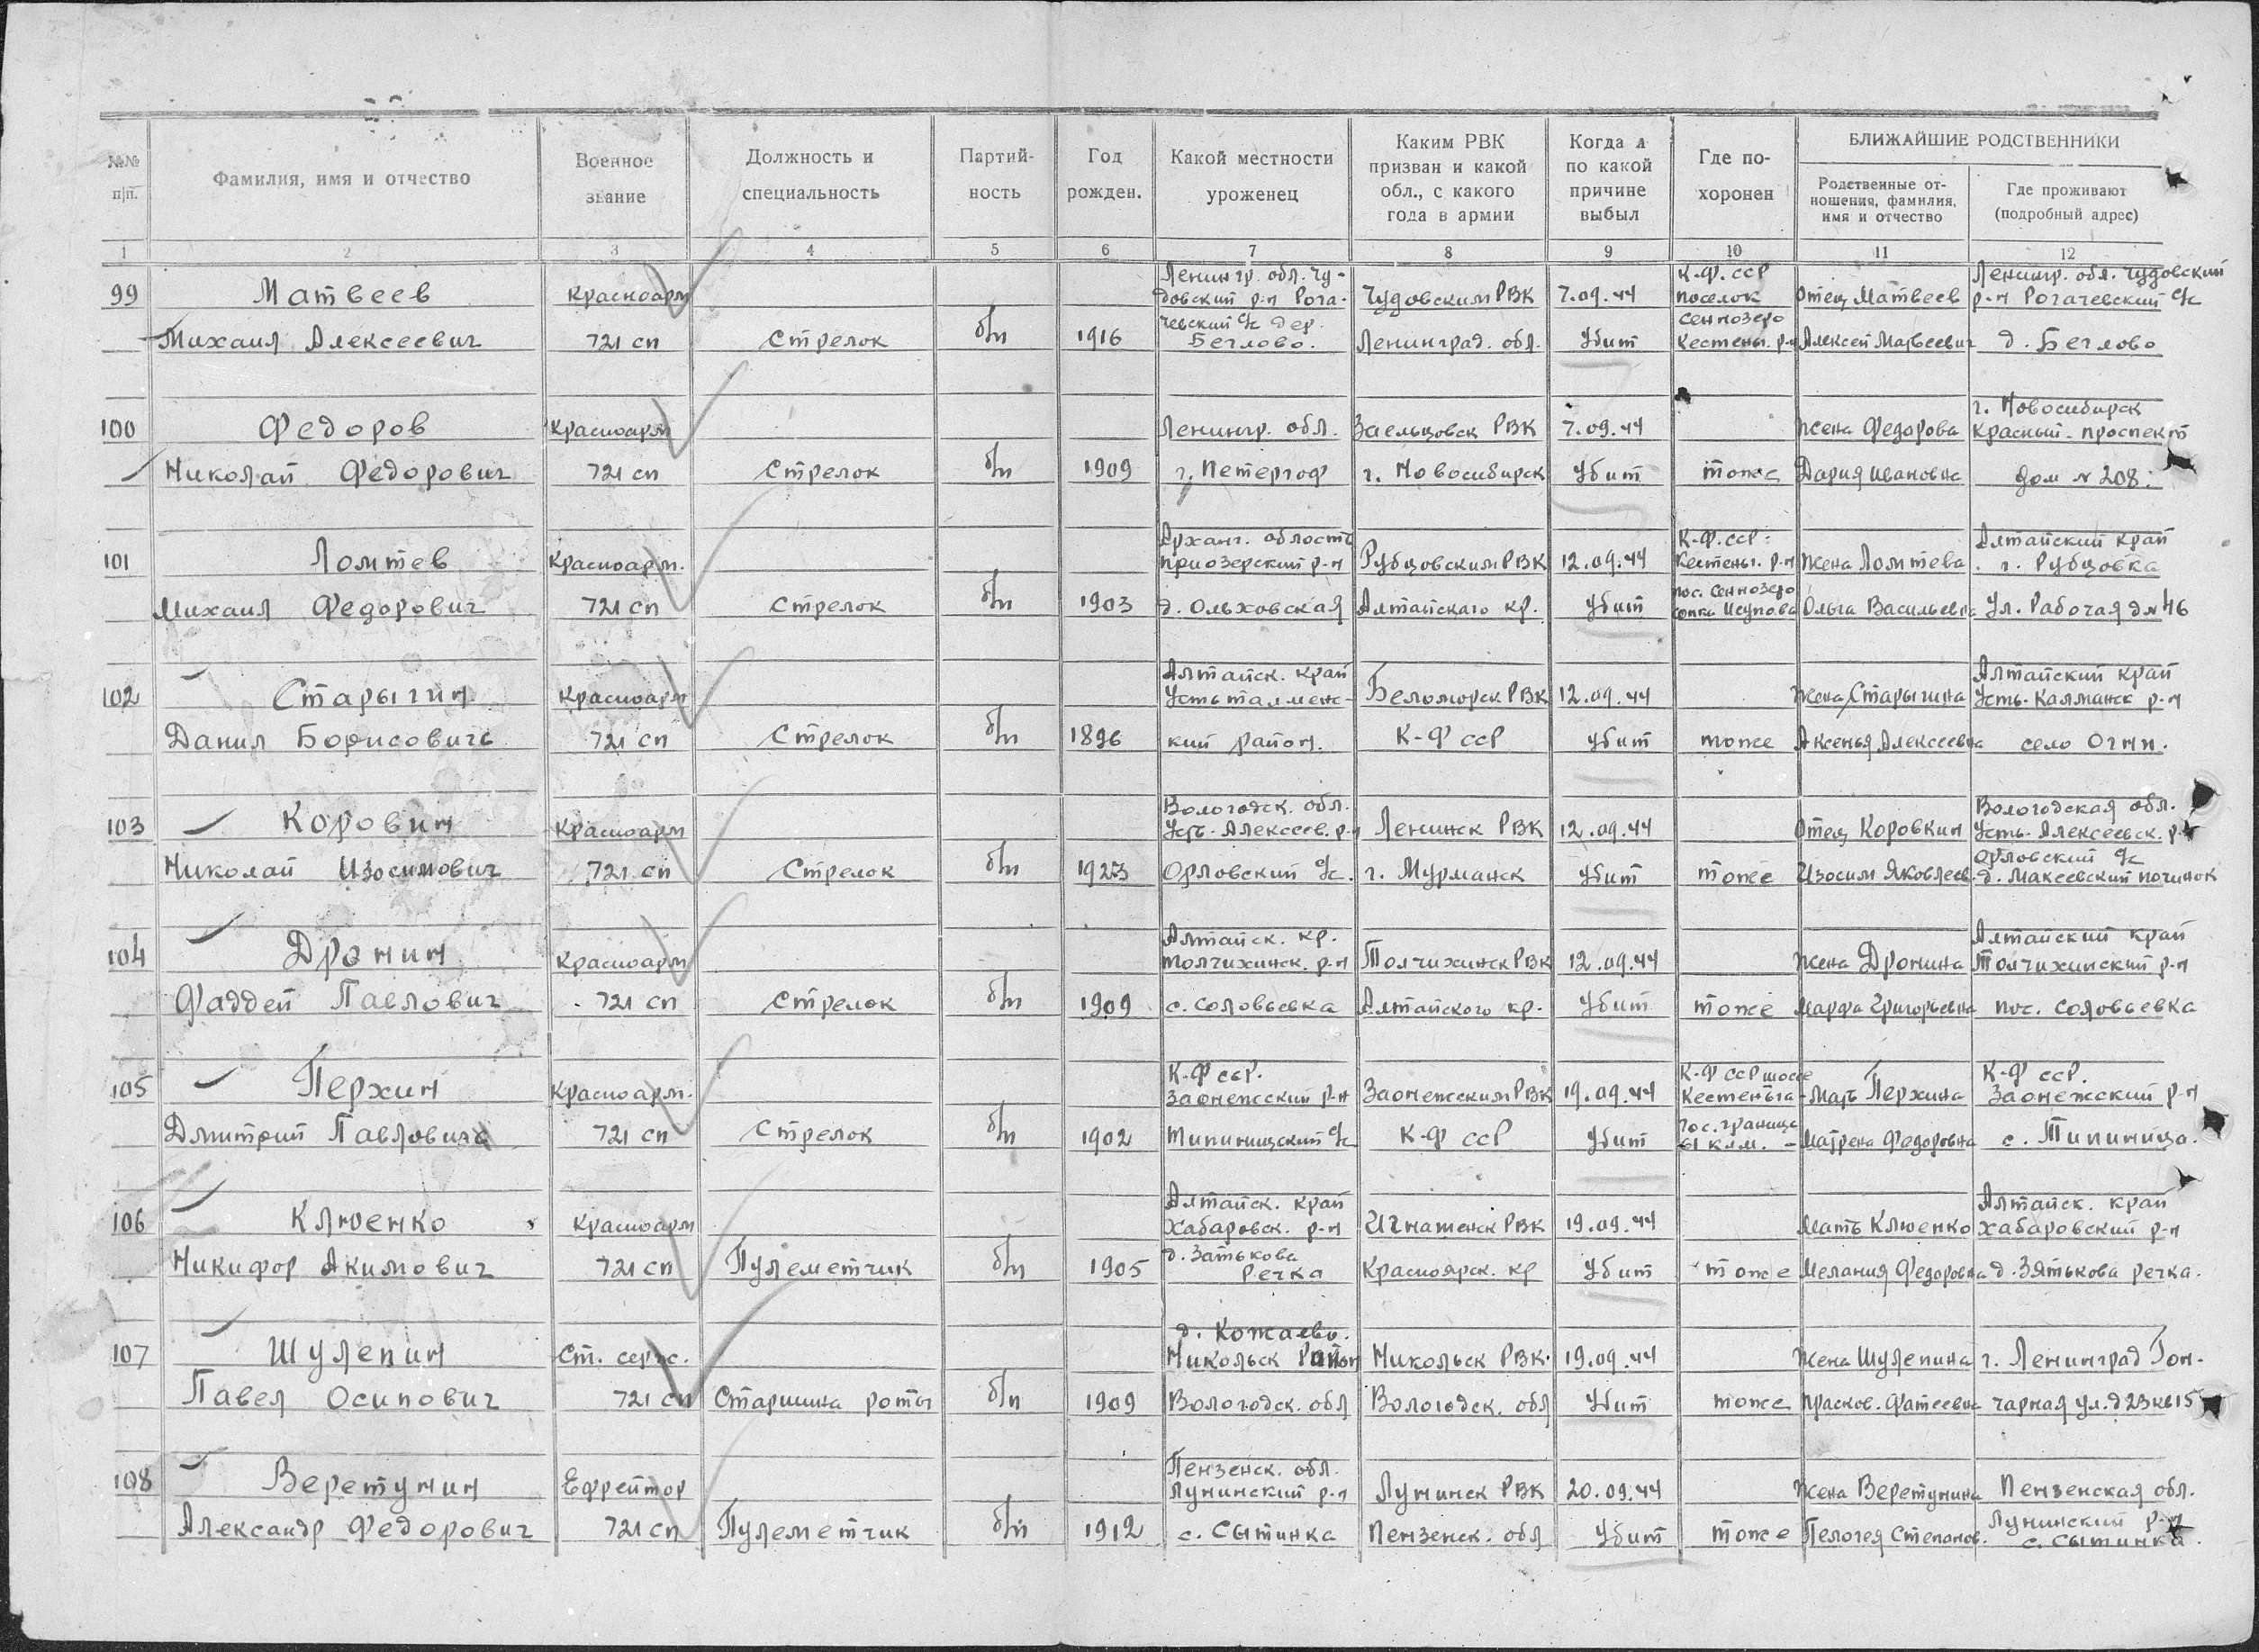 №№ п/п.
Фамилия, имя и отчество
Военное звание
Должность и специальность
Партий-
ность
Год рожден.
Какой местности уроженец
Каким РВК
призван и какой
обл., с какого
года в армии
Когда и
по какой
причине
выбыл
Где по-
хоронен
БЛИЖАЙШИЕ РОДСТВЕННИКИ
Родственные от-
ношения, фамилия,
имя и отчество
Где проживают
(подробный адрес)
1 2 3 4 5 6 7 8 9 10 11 12
99 Матвеев
Михаил Алексеевич
Красноарм
721 сп
Стрелок
б/п
1916
Ленингр. обл. Чу-
довский р-н Рога-
чевский с/с дер.
Беглово.
Чудовским РВК
Ленинград. обл.
7.09.44
Убит
К.Ф. ССР
поселок
Сеннозеро
Кестеньг. р-н
Отец Матвеев
Алексей Матвеевич
Ленингр. обл. Чудовский
р-н Рогачевский с/с
д. Беглово
100 Федоров
Николай Федорович
Красноарм
721 сп
Стрелок
б/п
1909
Ленингр. обл.
г. Петергоф
Заельцовск РВК
г. Новосибирск
7.09.44
Убит
тоже
Жена Федорова
Дария Ивановна
г. Новосибирск
Красный. проспект
дом № 208.
101 Ломтев
Михаил Федорович
Красноарм.
721 сп
Стрелок
б/п
1903
Арханг. область
Приозерский р-н
д. Ольховская
Рубцовским РВК
Алтайскаго кр.
12.09.44
Убит
К-Ф. ССР.
Кестеньг. р-н
пос. Сеннозеро
сопка Исупова
Жена Ломтева
Ольга Васильевна
Алтайский край
г. Рубцовка
ул. Рабочая д № 46
102 Старыгин
Данил Борисович
Красноарм
721 сп
Стрелок
б/п
1896
Алтайск. край
Усть талменс-
кий район.
Беломорск РВК
К-Ф ССР
12.09.44
Убит
тоже
Жена Старыгина
Аксенья Алексеевна
Алтайский край
Усть-Калманск р-н
село Огни.
103 Коровин
Николай Изосимович
Красноарм
721 сп
Стрелок
б/п
1923
Вологодск. обл.
Усть-Алексеев. р-н
Орловский с/с.
Ленинск РВК
г. Мурманск
12.09.44
Убит
тоже
Отец Коровкин
Изосим Яковлев.
Вологодская обл.
Усть-Алексеевск. р-н
Орловский с/с
д. Максевский починок
104 Дронин
Фаддей Павлович
Красноарм
721 сп
Стрелок
б/п
1909
Алтайск. кр.
Толчихинск. р-н
с. Соловьевка
Толчихинск РВК
Алтайского кр.
12.09.44
Убит
тоже
Жена Дронина
Марфа Григорьевна
Алтайский край
Толчихинский р-н
пос. Соловьевка
105 Перхин
Дмитрий Павлович
Красноарм.
721 сп
Стрелок
б/п
1902
К-Ф ССР.
Заонежский р-н
Типиницский с/с
Заонежским РВК
К-Ф ССР
19.09.44
Убит
К-Ф ССР шоссе
Кестеньга-
Гос. граница
61 клм.
Мать Перхина
Матрена Федоровна
К-Ф ССР.
Заонежский р-н
с. Типиница.
106 Клюенко
Никифор Акимович
Красноарм
721 сп
Пулеметчик
б/п
1905
Алтайск. край
Хабаровск. р-н
д. Затькова
Речка
Игнатенск РВК
Красноярск. кр
19.09.44
Убит
тоже
Мать Клюенко
Мелания Федоровна
Алтайск. край
Хабаровский р-н
д. Зятькова речка.
107 Шулепин
Павел Осипович
Ст. серж.
721 сп
Старшина роты
б/п
1909
д. Кожаево.
Никольск Район
Вологодск. обл
Никольск РВК.
Вологодск. обл
19.09.44
Убит
тоже
Жена Шулепина
Прасков. Фатеевна
г. Ленинград Гон-
чарная ул. д 23 кв 15
108 Веретунин
Александр Федорович
Ефрейтор
721 сп
Пулеметчик
б/п
1912
Пензенск. обл.
Лунинский р-н
с. Сытинка
Лунинск РВК
Пензенск. обл
20.09.44
Убит
тоже
Жена Веретунина
Пелогея Степанов.
Пензенская обл.
Лунинский р-н
с. Сытинка.